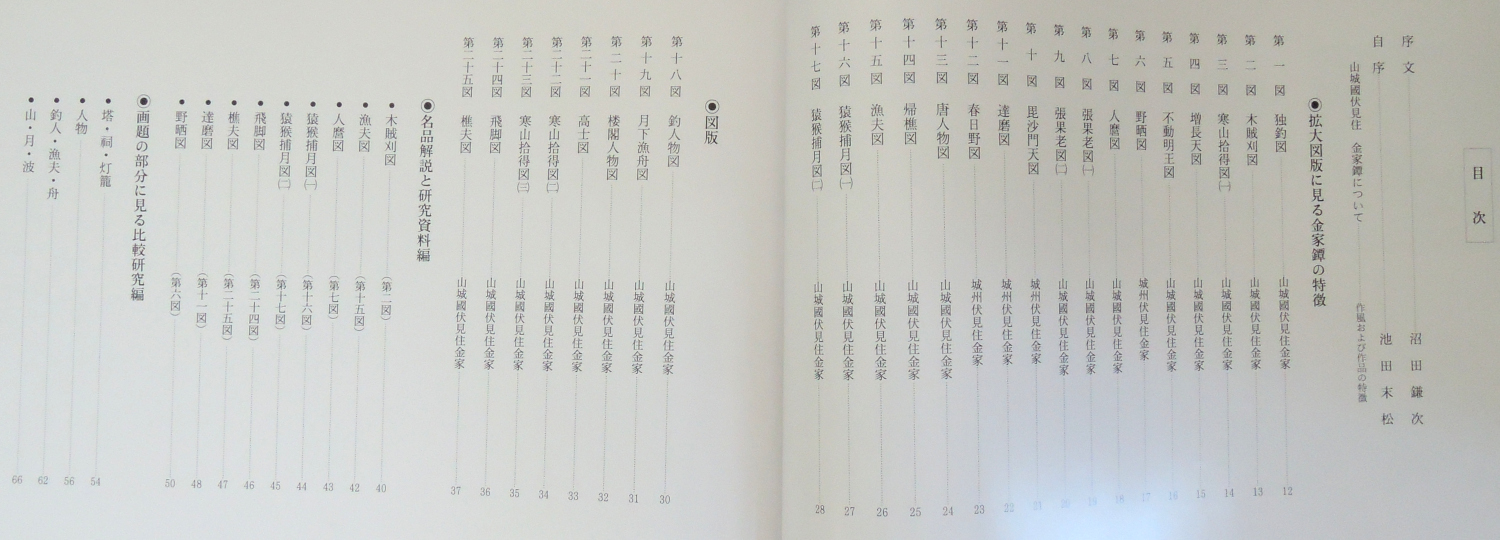 目次
序文 沼田鎌次
自序 池田末松
山城國伏見住 金家鐔について 作風および作品の特徴
◉拡大図版に見る金家鐔の特徴
第一図 独釣図 山城國伏見住金家 12
第二図 木賊刈図 山城國伏見住金家 13
第三図 寒山拾得図㈠ 山城國伏見住金家 14
第四図 増長天図 山城國伏見住金家 15
第五図 不動明王図 山城國伏見住金家 16
第六図 野晒図 城州伏見住金家 17
第七図 人麿図 山城國伏見住金家 18
第八図 張果老図㈠ 山城國伏見住金家 19
第九図 張果老図㈡ 山城國伏見住金家 20
第十図 毘沙門天図 城州伏見住金家 21
第十一図 達磨図 城州伏見住金家 22
第十二図 春日野図 城州伏見住金家 23
第十三図 唐人物図 山城國伏見住金家 24
第十四図 帰樵図 山城國伏見住金家 25
第十五図 漁夫図 山城國伏見住金家 26
第十六図 猿猴捕月図㈠ 山城國伏見住金家 27
第十七図 猿猴捕月図㈡ 山城國伏見住金家 28
◉図版
第十八図 釣人物図 山城國伏見住金家 30
第十九図 月下漁舟図 山城國伏見住金家 31
第二十図 楼閣人物図 山城國伏見住金家 32
第二十一図 高士図 山城國伏見住金家 33
第二十二図 寒山拾得図㈡ 山城國伏見住金家 34
第二十三図 寒山拾得図㈢ 山城國伏見住金家 35
第二十四図 飛脚図 山城國伏見住金家 36
第二十五図 樵夫図 山城國伏見住金家 37
◉名品解説と研究資料編
●木賊刈図 (第二図) 40
●漁夫図 (第十五図) 42
●人麿図 (第七図) 43
●猿猴捕月図㈠ (第十六図) 44
●猿猴捕月図㈡ (第十七図) 45
●飛脚図 (第二十四図) 46
●樵夫図 (第二十五図) 47
●達磨図 (第十一図) 48
●野晒図 (第六図) 50
◉画題の部分に見る比較研究編
●塔・祠・灯籠 54
●人物 56
●釣人・漁夫・舟 62
●山・月・波 66